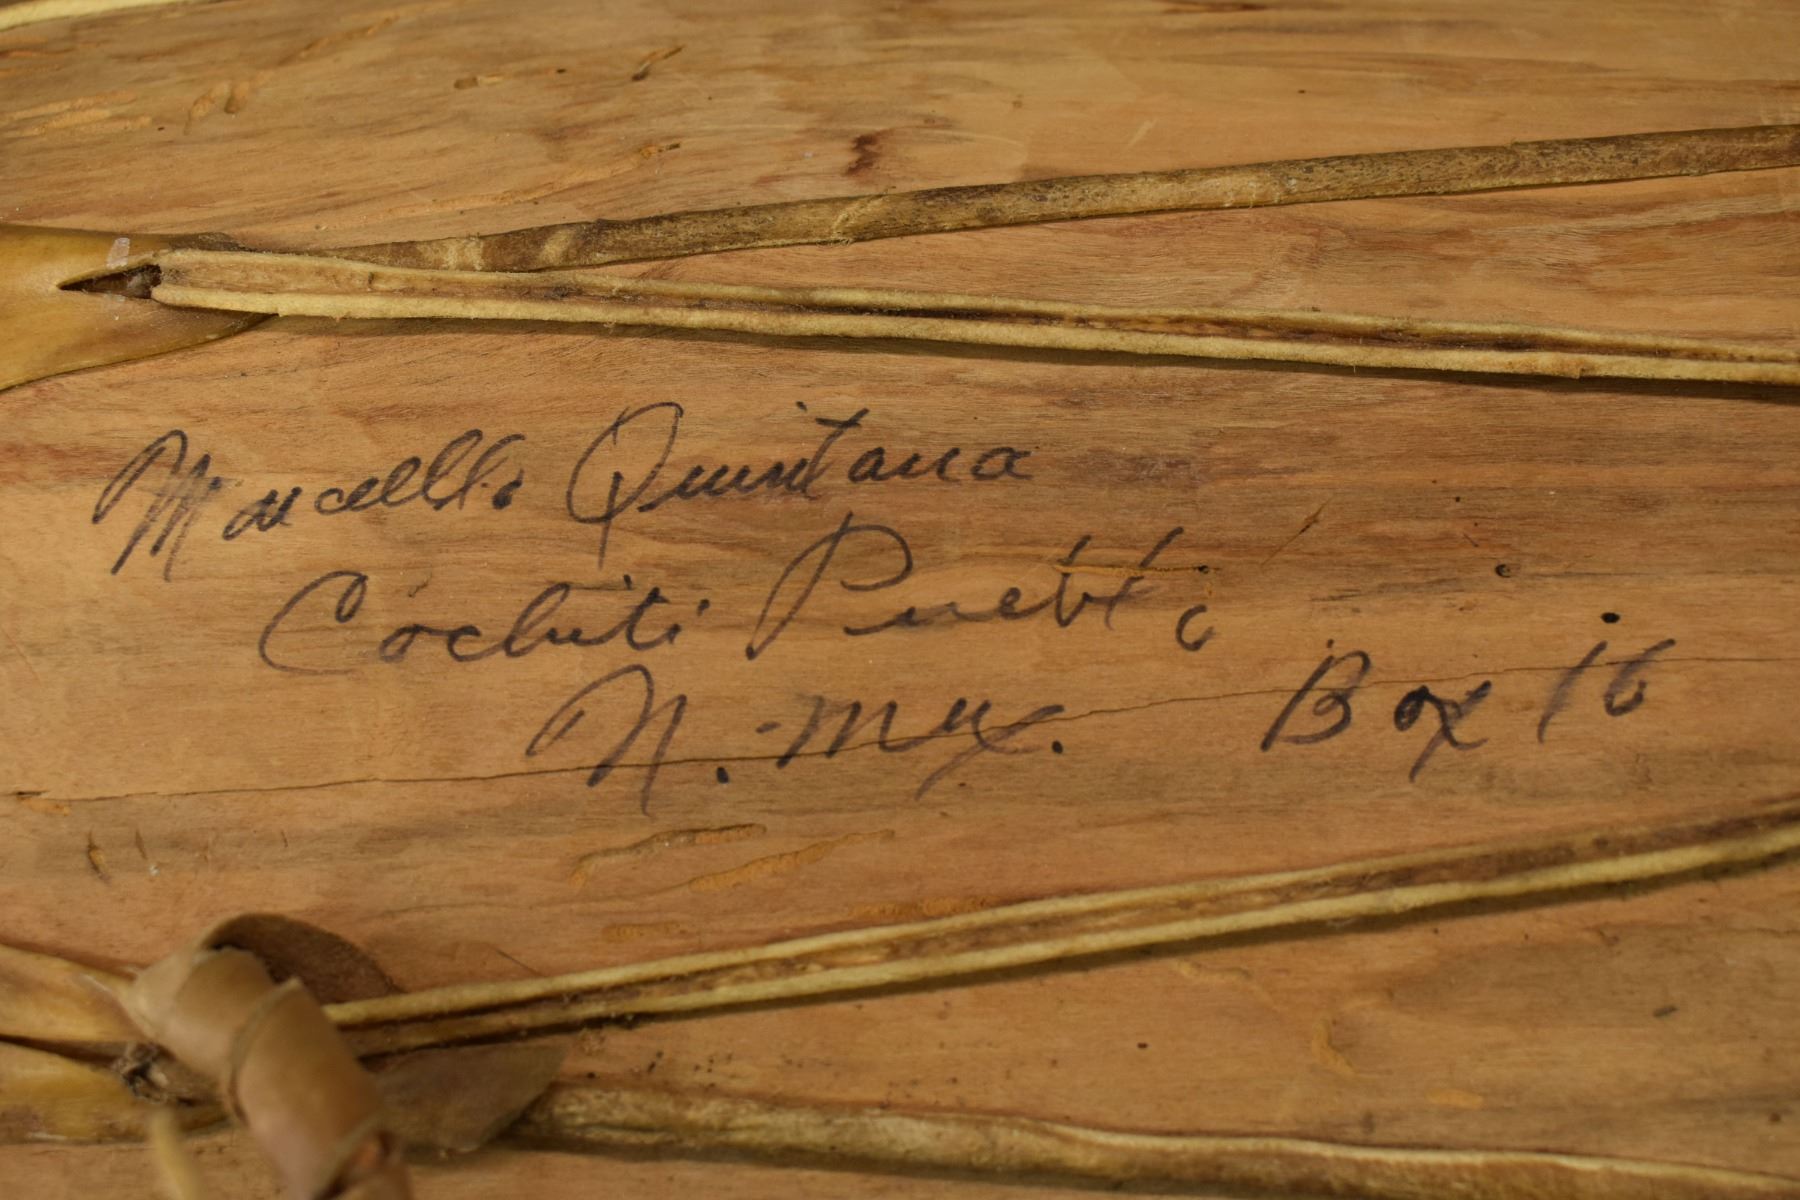 Marcello Quintana
Cochiti Pueblo
N. Mex. Box 16